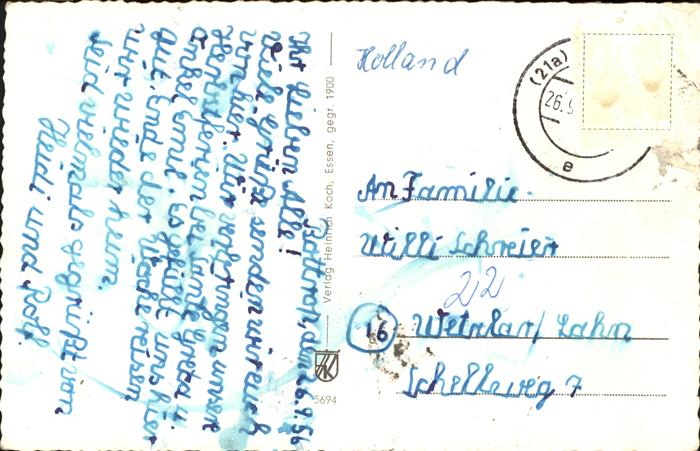 Bottrop, den 26.9.56
Ihr lieben Alle!
Viele Grüße senden wir euch
von hier. Wir verbringen unsere
Herbstferien bei Tante Greta u.
Onkel Emil. Es gefällt uns hier
gut. Ende der Woche reisen
wir wieder heim.
Seid vielmals gegrüßt von
Heidi und Rolf
Verlag Heinrich Koch, Essen, gegr. 1900
5694
Holland
(21a)
26.9
e
An Familie
Willi Schreier
22
16 Wetzlar/Lahn
Schelleweg 7